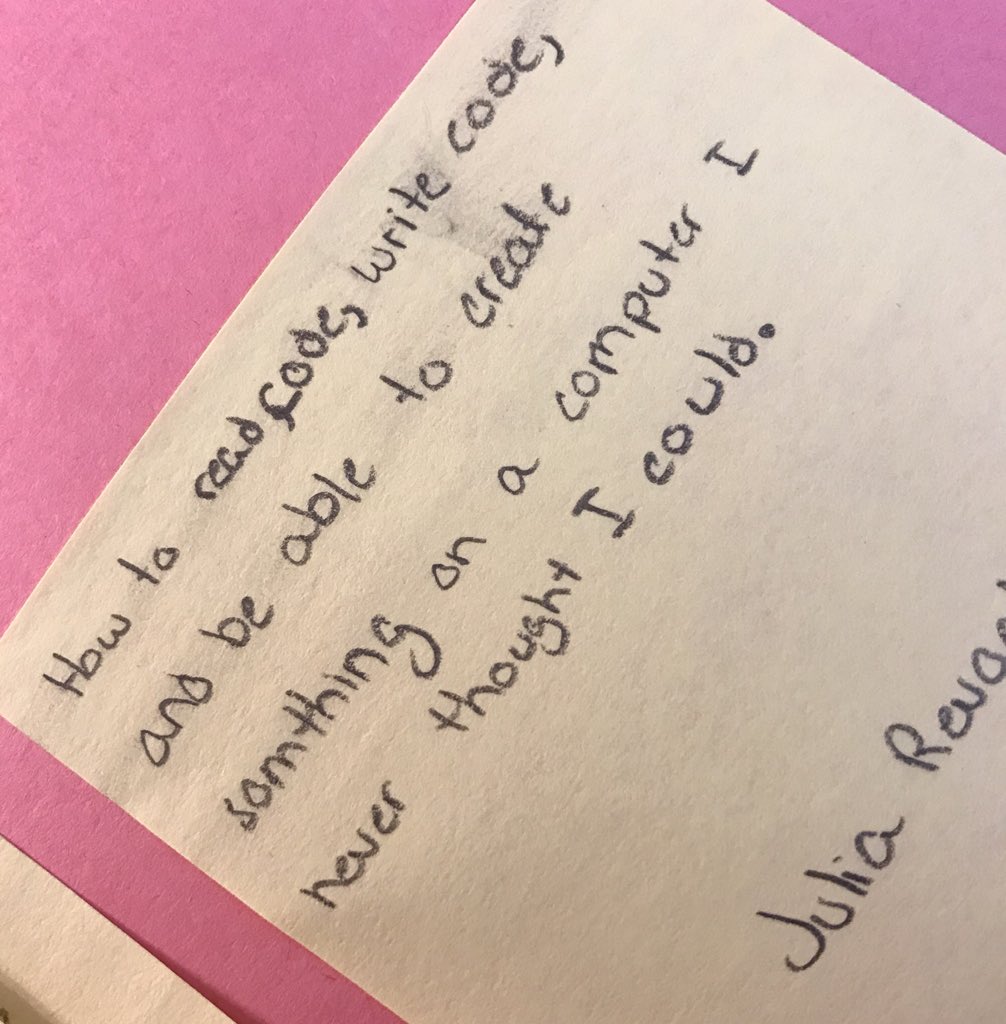 How to read code, write code,
and be able to create
somthing on a computer I
never thought I could.
Julia